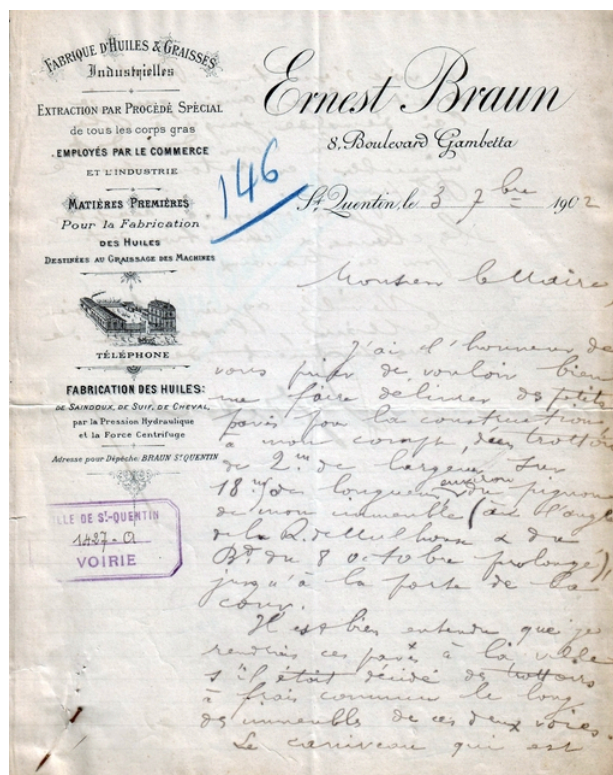 FABRIQUE D'HUILES & GRAISSES
Industrielles
EXTRACTION PAR PROCÉDÉ SPÉCIAL
de tous les corps gras
EMPLOYÉS PAR LE COMMERCE
ET L'INDUSTRIE
MATIÈRES PREMIÈRES
Pour la Fabrication
DES HUILES
DESTINÉES AU GRAISSAGE DES MACHINES
TÉLÉPHONE
FABRICATION DES HUILES:
DE SAINDOUX, DE SUIF, DE CHEVAL,
par la Pression Hydraulique
et la Force Centrifuge
Adresse pour Dépêche: BRAUN ST QUENTIN
VILLE DE ST-QUENTIN
VOIRIE
146
Ernest Braun
8, Boulevard Gambetta
St Quentin, le 3 7bre 1902
Monsieur le Maire
J'ai l'honneur de
vous prier de vouloir bien
me faire délivrer des petits
pavés pour la construction
à mon compte, d'un trottoir
de 2m de largeur sur
18m de longueur environ du pignon
de mon immeuble (à l'angle
de la R. de Mulhouse & du
Bd du 8 octobre prolongé)
jusqu'à la porte de la
cour.
Il est bien entendu que je
rendrais ces pavés à la ville
s'il était décidé des trottoirs
à frais communs le long
des immeubles de ces deux voies.
Le caniveau qui est